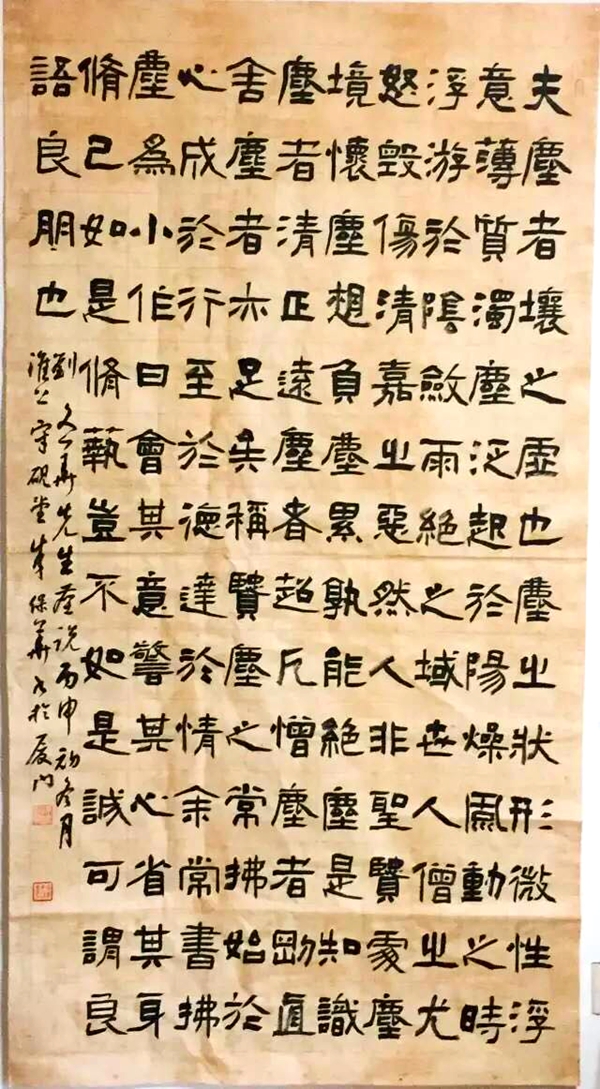 夫塵者壤之虛也塵之狀形微性浮
意薄質濁塵泛起於陽燥風動之時
浮游於陰斂雨絕之域世人僧之尤
怒毀傷清嘉之惡然人非聖賢處塵
境懷塵想負塵累孰能絕塵是知識
塵者清正遠塵者超凡憎塵者剛直
舍塵者亦足矣稱賢塵之常拂始於
心成於行至於德達於情余常書拂
塵為小作曰會其意警其心省其身
脩己如是脩藝豈不如是誠可謂良
語良朋也
劉文華先生塵說丙申初冬月
淮上守硯堂保華書於廈門